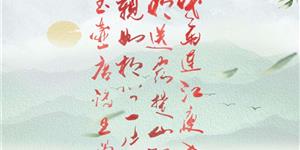 雨連江夜
明送客楚山
親如相問一片
玉壺唐詩王昌